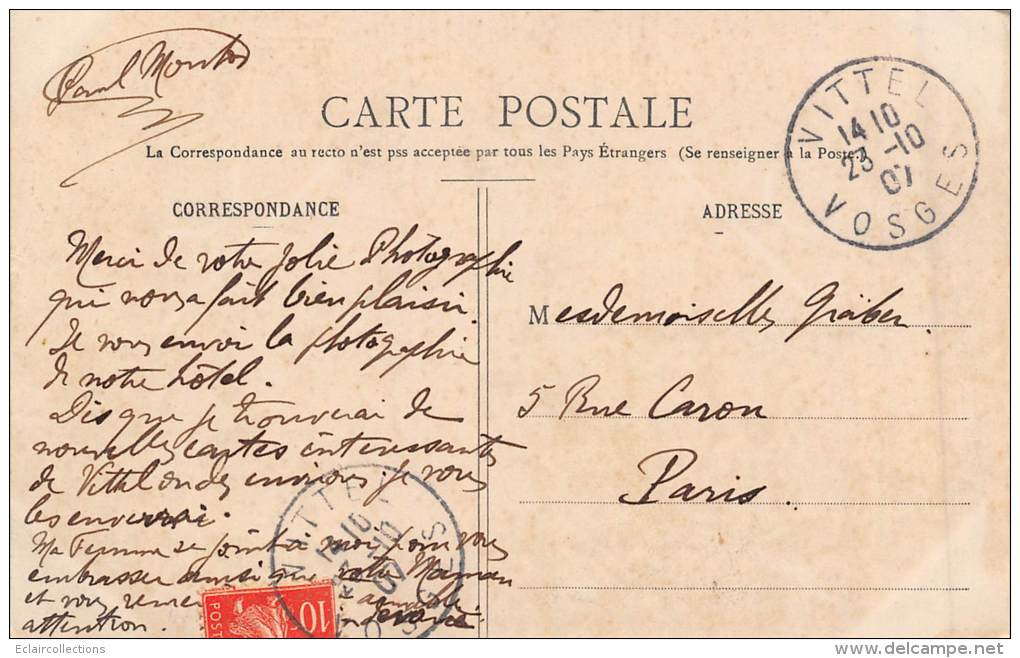 Paul
CARTE POSTALE
La Correspondance au recto n'est pss acceptée par tous les Pays Étrangers (Se renseigner à la Poste.)
VITTEL
14 10
23 -10
07
VOSGES
CORRESPONDANCE
ADRESSE
Merci de votre jolie Photographie
qui nous a fait bien plaisir.
Je vous envoi la photographie
de notre hôtel.
Dis que je trouverai de
nouvelles cartes intéressantes
de Vittel ou des environs je vous
les enverrai.
Ma Femme se joint a moi pour vous
embrasser ainsi que votre Maman
et vous
attention.
Mesdemoiselles Gräber.
5 Rue Caron
Paris.
VITTEL
10
07
10
POST
Eclaircollections
delcampe.net